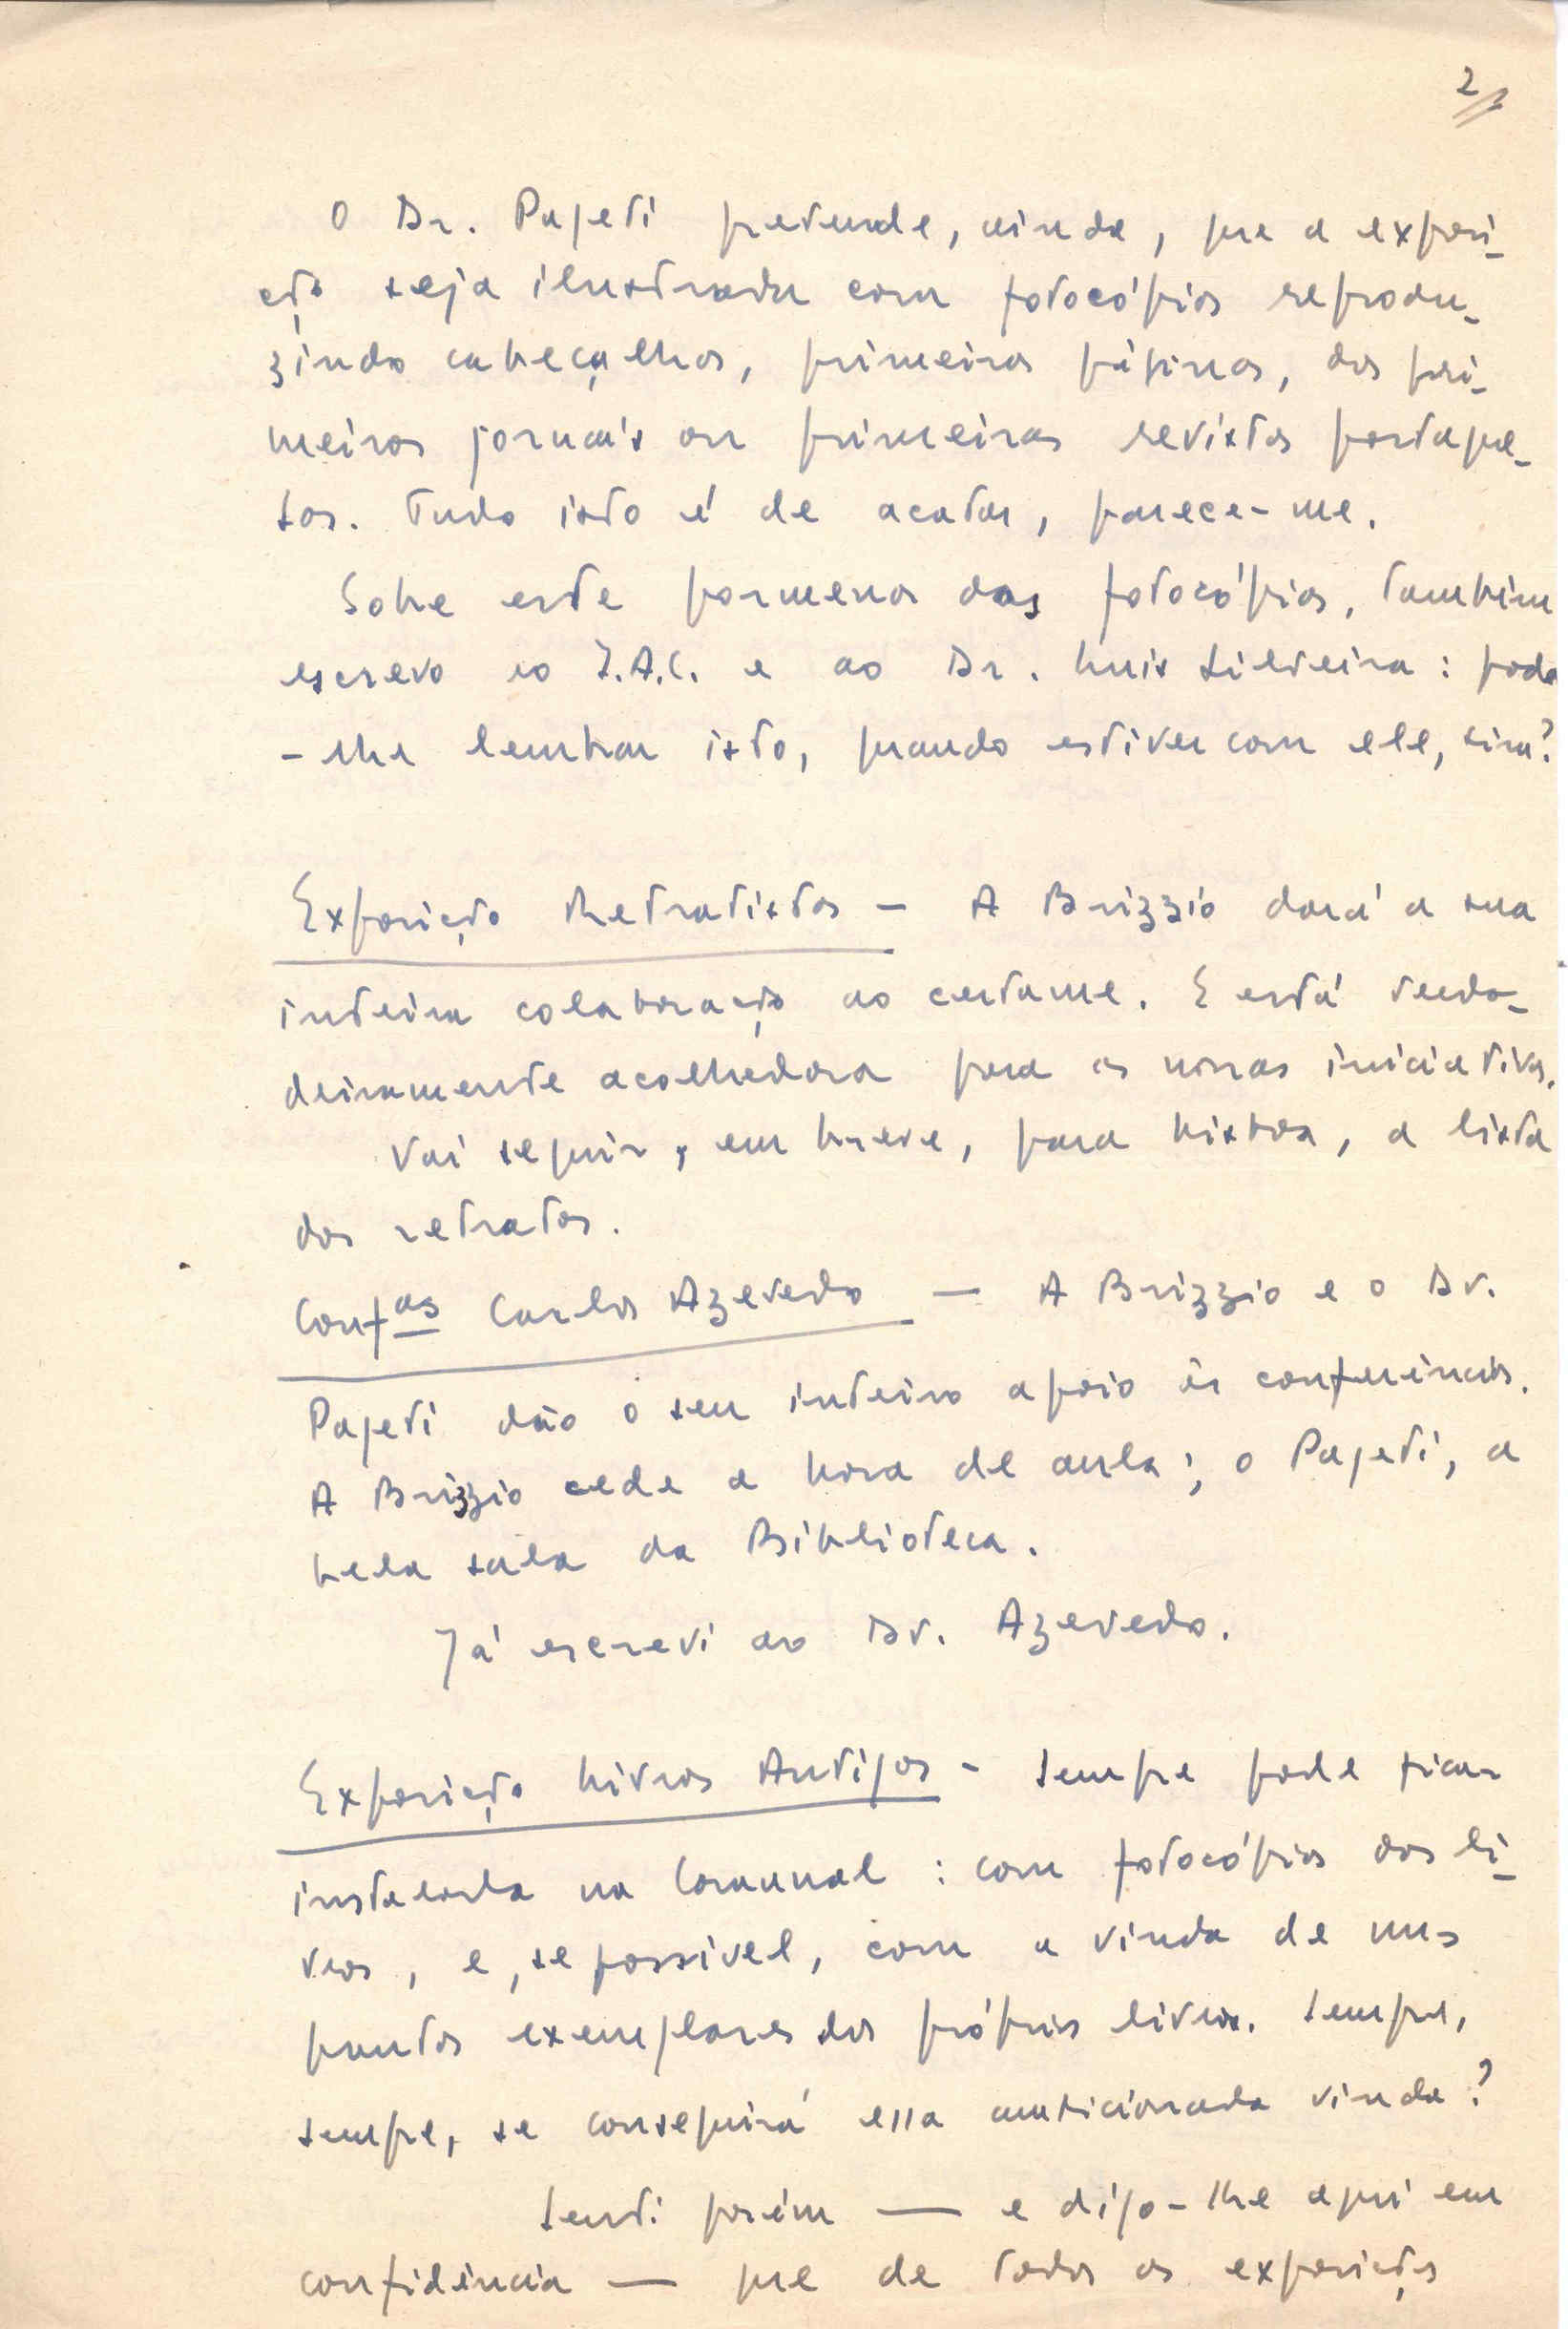 2
O Dr. Pageti pretende, ainda, que a exposi-
ção seja ilustrada com fotocópias reprodu-
zindo cabeçalhos, primeiras páginas, dos pri-
meiros jornais ou primeiras revistas portugue-
sas. Tudo isto é de acatar, parece-me.
Sobre este pormenor das fotocópias, também
escrevo ao I.A.C. e ao Dr. Luis Silveira: pode
-lhe lembrar isto, quando estiver com ele, sim?
Exposição Retratistas — A Brizzio dará a sua
inteira colaboração ao certame. E está verda-
deiramente acolhedora para as novas iniciativas.
Vai seguir, em breve, para Lisboa, a lista
dos retratos.
Confas Carlos Azevedo — A Brizzio e o Dr.
Pageti dão o seu inteiro apoio às conferências.
A Brizzio cede a hora de aula; o Pageti, a
bela sala da Biblioteca.
Já escrevi ao Dr. Azevedo.
Exposição Livros Antigos - Sempre pode ficar
instalada na Comunal: com fotocópias dos li-
vros, e, se possível, com a vinda de uns
quantos exemplares dos próprios livros. Sempre,
sempre, se conseguirá essa ambicionada vinda?
Senti porém — e digo-lhe aqui em
confidência — que de todas as exposições